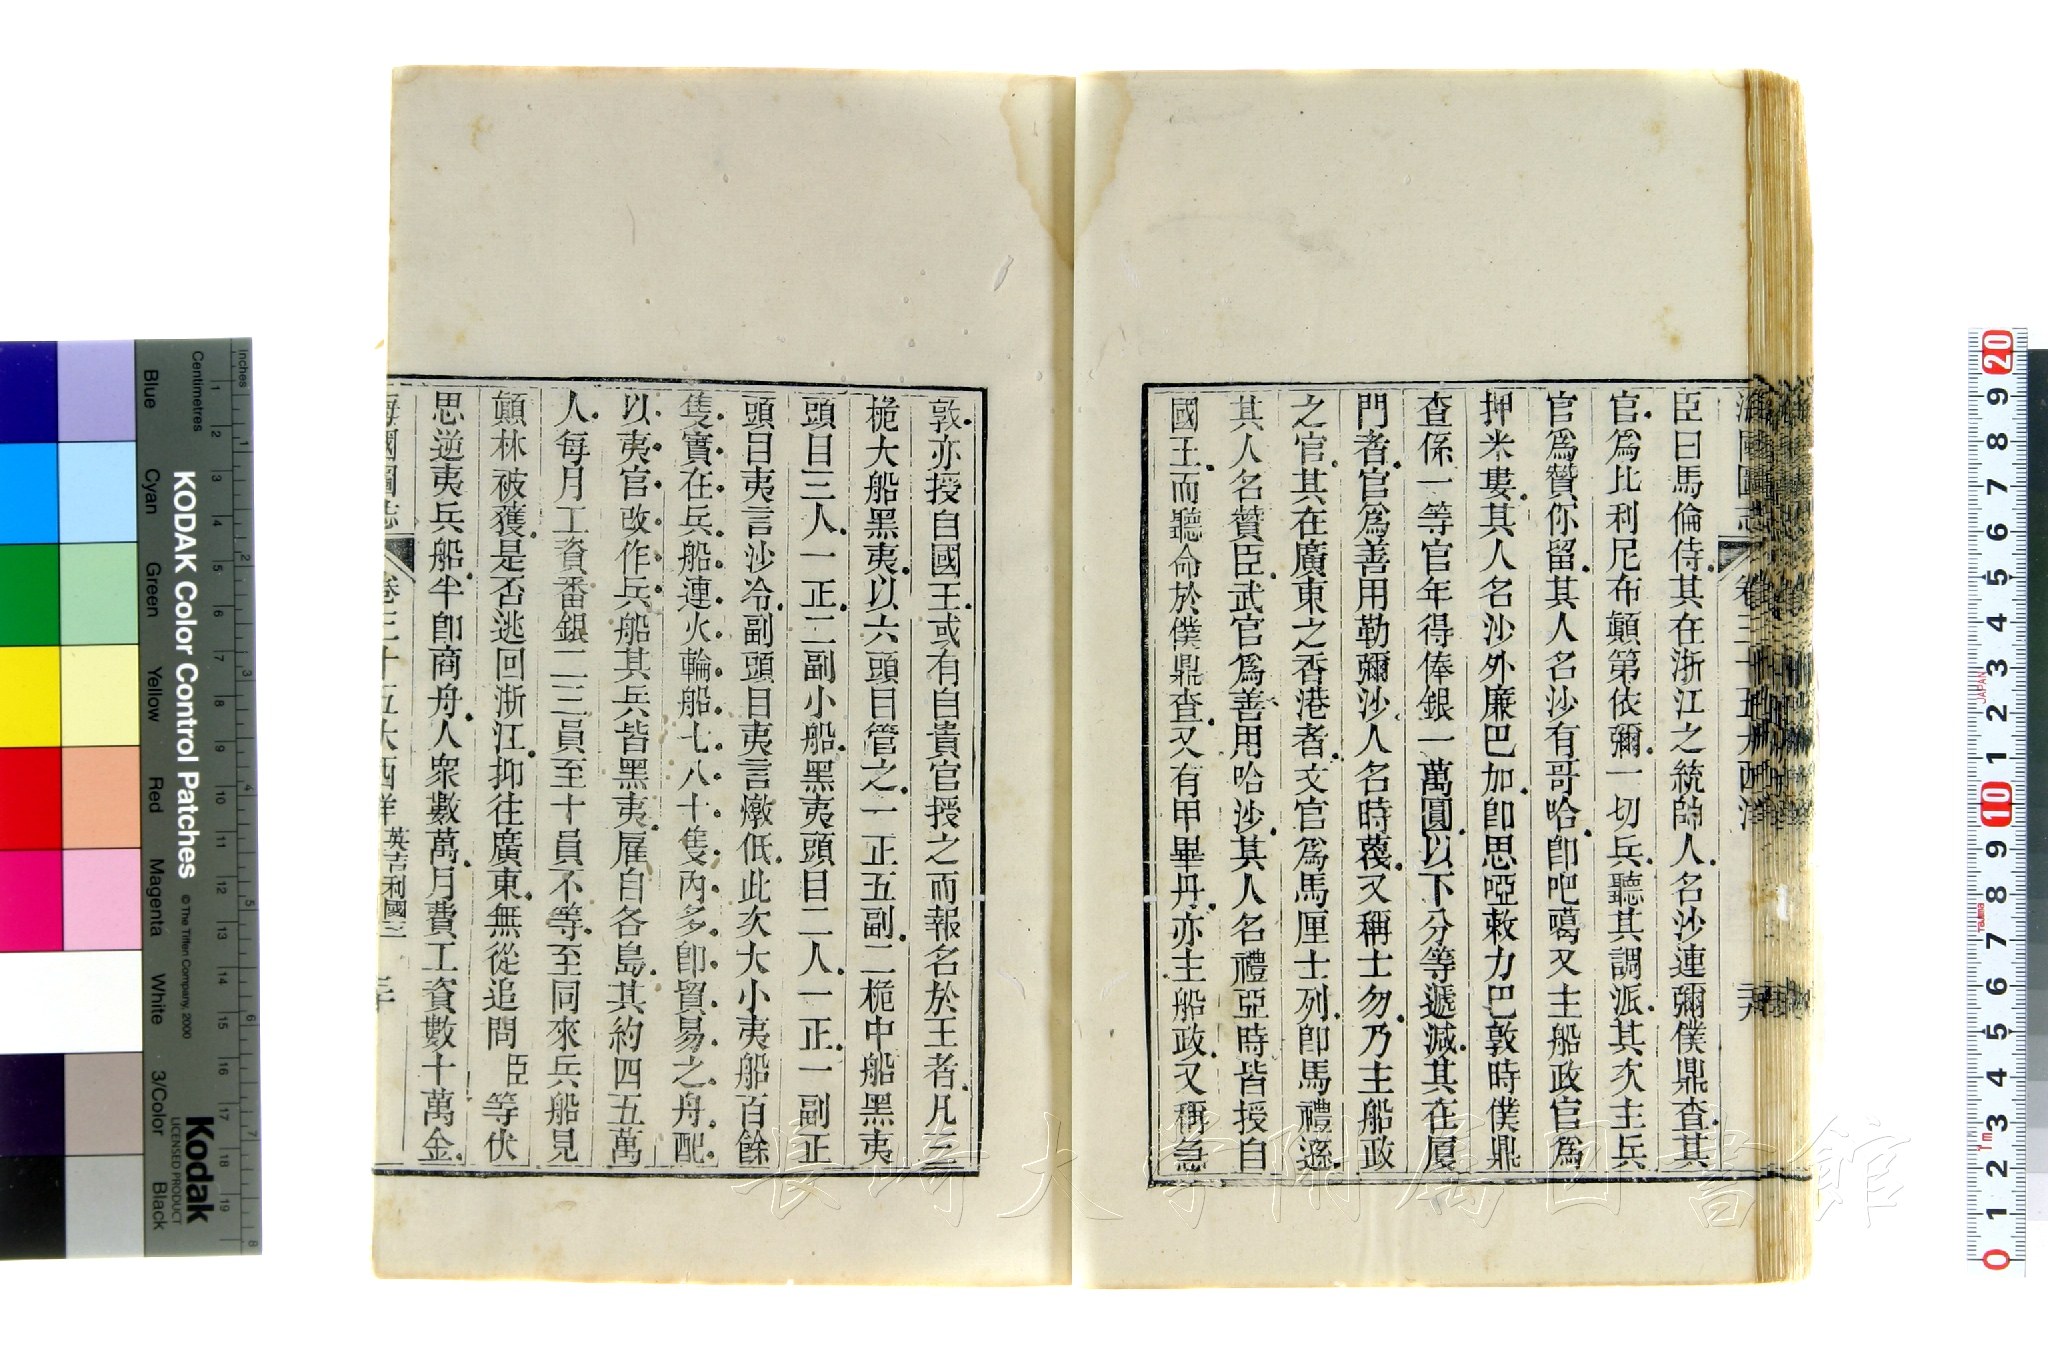 臣曰馬倫侍其在浙江之統帥人名沙連彌僕鼎查其
官為比利尼布顛第依彌一切兵聽其調派其次主兵
官為贊你留其人名沙有哥哈卽吧噶又主船政官為
押米婁其人名沙外廉巴加卽思啞敕力巴敦時僕鼎
查係一等官年得俸銀一萬圓以下分等遞減其在厦
門者官為善用勒彌沙人名時蔑又稱士勿乃主船政
之官其在廣東之香港者文官為馬厘士列卽馬禮遜
其人名贊臣武官為善用哈沙其人名禮亞時皆授自
國王而聽命於僕鼎查又有甲畢丹亦主船政又稱急
敦亦授自國王或有自貴官授之而報名於王者凡三
桅大船黑夷以六頭目管之一正五副二桅中船黑夷
頭目三人一正二副小船黑夷頭目二人一正一副正
頭目夷言沙冷副頭目夷言燉低此次大小夷船百餘
隻實在兵船連火輪船七八十隻內多卽貿易之舟配
以夷官改作兵船其兵皆黑夷雇自各島其約四五萬
人每月工資番銀二三員至十員不等至同來兵船見
顛林被獲是否逃回浙江抑往廣東無從追問臣等伏
思逆夷兵船半卽商舟人衆數萬月費工資數十萬金
海國圖志 卷三十五大西洋 英吉利國三 三十
KODAK Color Control Patches
© The Tiffen Company, 2000
Kodak
LICENSED PRODUCT
Inches
Centimetres
Blue
Cyan
Green
Yellow
Red
Magenta
White
3/Color
Black
長崎大学附属図書館